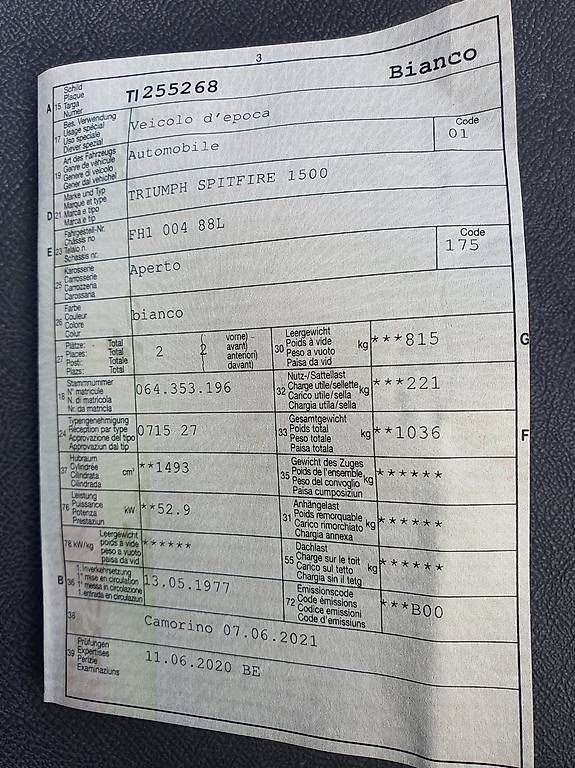 3
Schild
Plaque
Targa
Numer
A 15 TI 255268 Bianco
Bes. Verwendung
Usage spécial
Uso speciale
Diever spezial
17 Veicolo d'epoca
Art des Fahrzeugs
Genre de véhicule
Genere di veicolo
Gener dal vehichel
19 Automobile
Code
01
Marke und Typ
Marque et type
Marca e tipo
Marca e tip
D 21 TRIUMPH SPITFIRE 1500
Fahrgestell-Nr.
Châssis no
Telaio n.
Schassis nr.
E 23 FH1 004 88L
Karosserie
Carrosserie
Carrozzeria
Carossaria
25 Aperto
Code
175
Farbe
Couleur
Colore
Colur
26 bianco
Plätze: Total
Places: Total
Posti: Totale
Plazs: Total
27 2
vorne)
avant)
anteriori)
davant)
2
Leergewicht
Poids à vide
Peso a vuoto
Paisa da vid
30 kg ***815 G
Stammnummer
N° matricule
N. di matricola
Nr. da matricla
18 064.353.196
Nutz-/Sattellast
Charge utile/sellette
Carico utile/sella
Chargia utila/sella
32 kg ***221
Typengenehmigung
Réception par type
Approvazione del tipo
Approvaziun dal tip
24 0715 27
Gesamtgewicht
Poids total
Peso totale
Paisa totala
33 kg **1036 F
Hubraum
Cylindrée
Cilindrata
Cilindrada
37 cm³ **1493
Gewicht des Zuges
Poids de l'ensemble
Peso del convoglio
Paisa cumposiziun
35 kg ******
Leistung
Puissance
Potenza
Prestaziun
76 kW **52.9
Anhängelast
Poids remorquable
Carico rimorchiato
Chargia annexa
31 kg ******
Leergewicht
poids à vide
peso a vuoto
paisa da vid
78 kW/kg ******
Dachlast
Charge sur le toit
Carico sul tetto
Chargia sin il tetg
55 kg ******
1. Inverkehrsetzung
1re mise en circulation
1a messa in circolazione
1. entrada en circulaziun
B 36 13.05.1977
Emissionscode
Code émissions
Codice emissioni
Code d'emissiuns
72 ***B00
38 Camorino 07.06.2021
Prüfungen
Expertises
Perizie
Examinaziuns
39 11.06.2020 BE